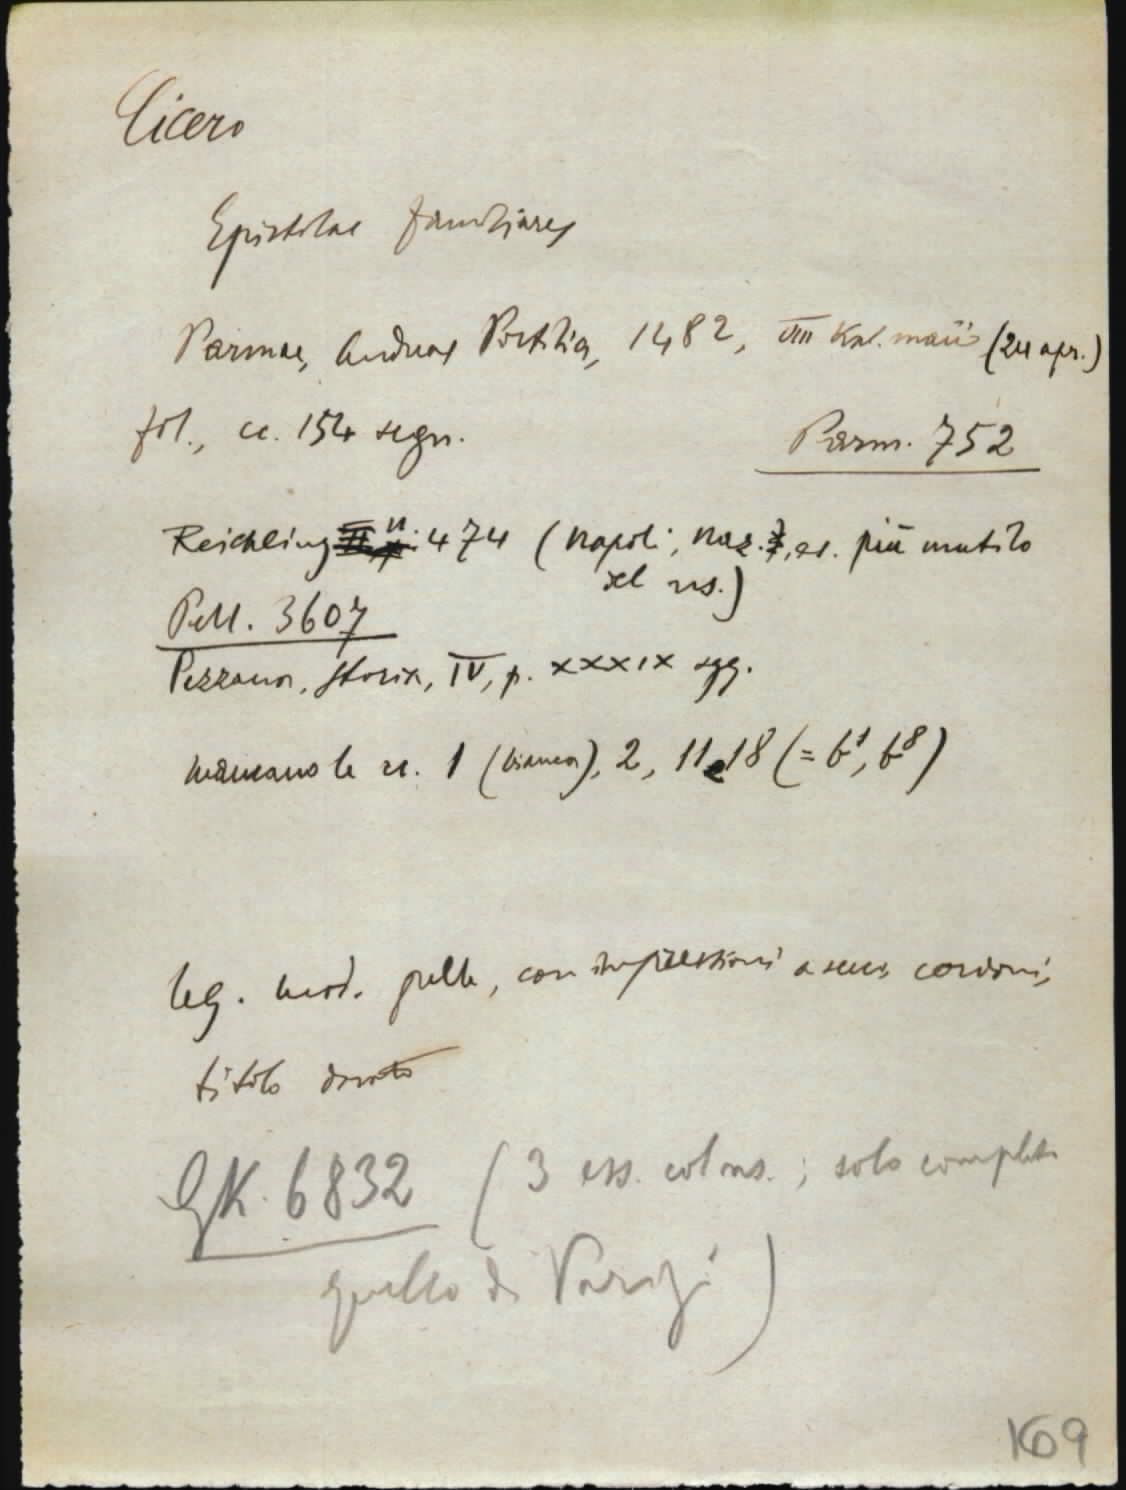 Cicero
Epistolae familiares
Parmae, Andreas Portilia, 1482, VIII Kal. maii (24 apr.)
fol., cc. 154 segn.
Parm. 752
Reichling n. 474 (Napoli, Naz., es. più mutilo
del ns.)
Pell. 3607
Pezzana, Storia, IV, p. XXXIX sgg.
mancano le cc. 1 (bianca), 2, 11 e 18 (= b1, b8)
leg. mod. pelle, con impressioni a secco, cordoni,
titolo dorato
GK. 6832 (3 ess. col ns.; solo completo
quello di Parigi)
169